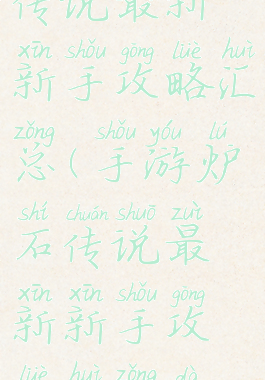 传说最新
xīn shǒu gōng lüè huì
新手攻略汇
zǒng shǒu yóu lú
总(手游炉
shí chuán shuō zuì
石传说最
xīn xīn shǒu gōng
新新手攻
lüè huì zǒng dà